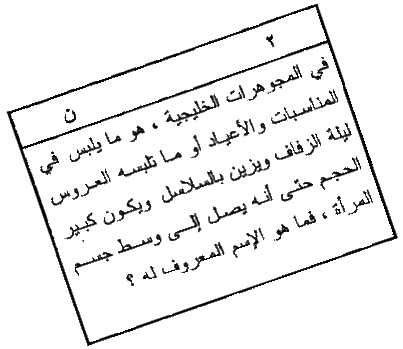 ٢
ن
في المجوهرات الخليجية ، هو ما يلبس في
المناسبات والأعياد أو ما تلبسه العروس
ليلة الزفاف ويزين بالسلاسل ويكون كبير
الحجم حتى أنه يصل إلى وسط جسم
المرأة ، فما هو الإسم المعروف له ؟